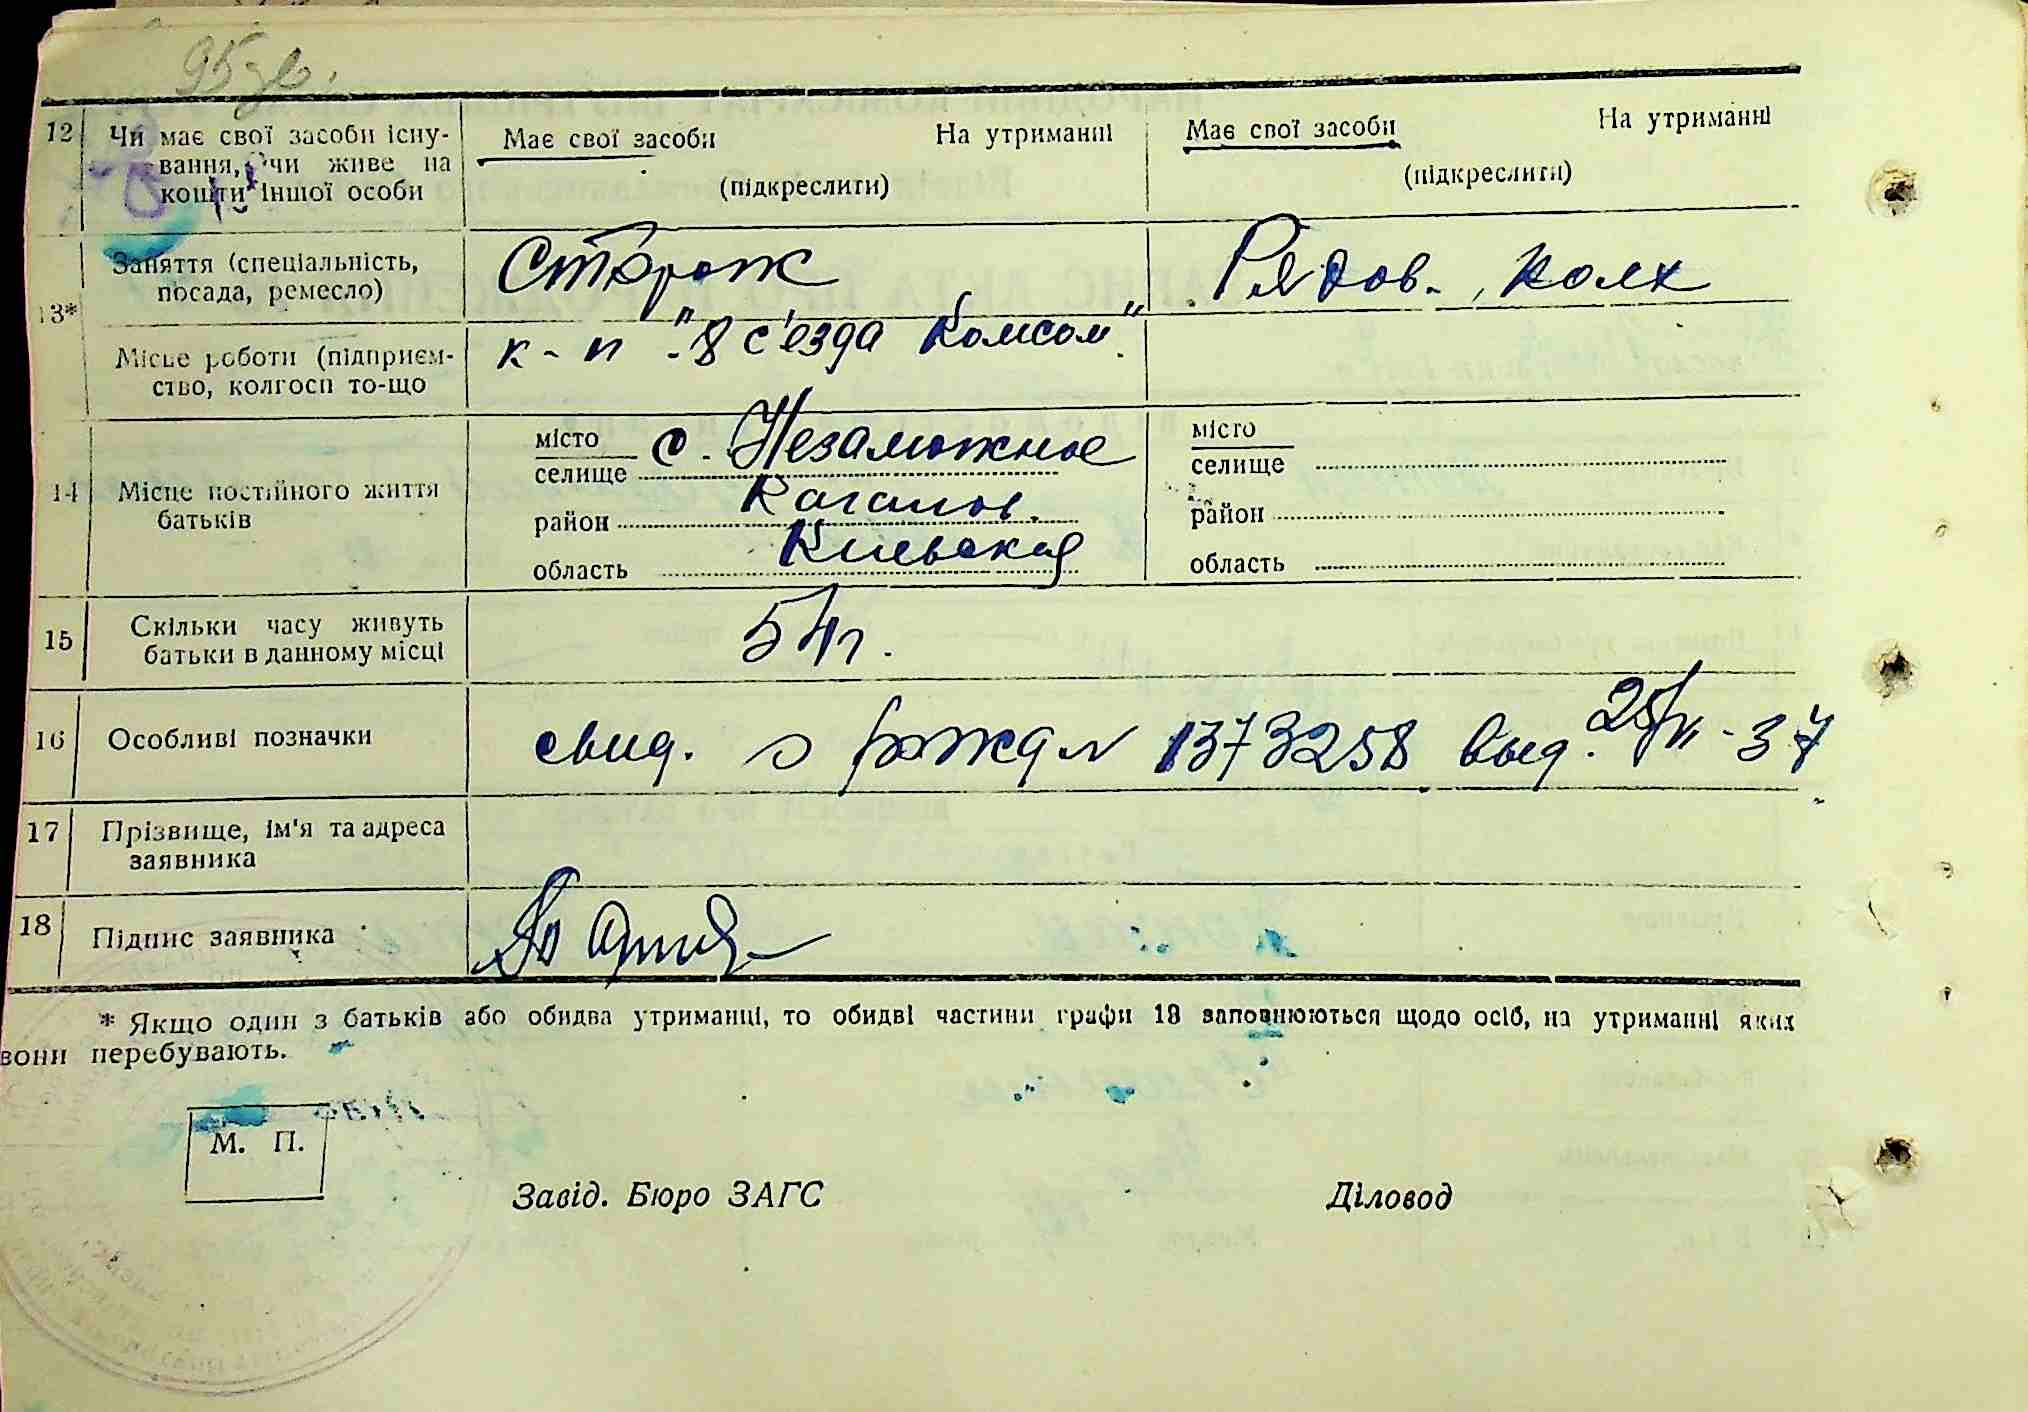 95
12 Чи має свої засоби існу- Має свої засоби На утриманні Має свої засоби На утриманні
вання, чи живе на (підкреслити) (підкреслити)
кошти іншої особи
13* Заняття (спеціальність, Сторож Рядов. колх
посада, ремесло)
Місце роботи (підприєм- к-п "8 с'езда Комсом"
ство, колгосп то-що
14 Місце постійного життя місто с. Незаможное місто
батьків селище селище
район Каганов. район
область Киевская область
15 Скільки часу живуть
батьки в данному місці
16 Особливі позначки свид. о рожд N 1373258 выд. 37
17 Прізвище, ім'я та адреса
заявника
18 Підпис заявника
* Якщо один з батьків або обидва утриманці, то обидві частини графи 18 заповнюються щодо осіб, на утриманні яких
вони перебувають.
М. П.
Завід. Бюро ЗАГС Діловод